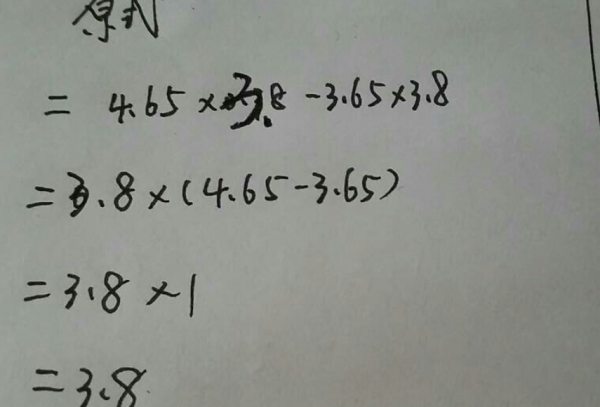 原式
= 4.65×3.8-3.65×3.8
=3.8×(4.65-3.65)
=3.8×1
=3.8